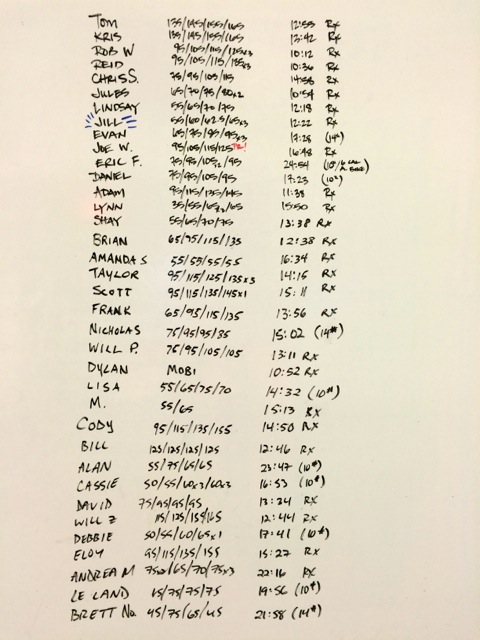 TOM 135/145/155/165 12:55 Rx
KRIS 135/145/155/165 13:42 Rx
ROB W 95/105/115/125x3 10:12 Rx
REID 95/105/115/135x3 10:36 Rx
CHRIS S. 75/95/105/115 14:58 Rx
JULES 65/70/75/80x2 10:54 Rx
LINDSAY 55/65/70/75 12:18 Rx
JILL 55/60/62.5/65x3 12:22 Rx
EVAN 65/75/85/95x3 17:28 (14#)
JOE W. 95/105/115/125 PR! 16:48 Rx
ERIC F. 75/95/105/95 24:54
DANIEL 75/95/105/95 17:23 (10#)
ADAM 95/115/135/145 11:38 Rx
LYNN 35/55/65/65 15:50 Rx
SHAY 55/65/70/75 13:38 Rx
BRIAN 65/75/115/135 12:38 Rx
AMANDA S 55/55/55/55 16:34 Rx
TAYLOR 95/115/125/135x3 14:15 Rx
SCOTT 95/115/135/145x1 15:11 Rx
FRANK 65/95/115/135 13:56 Rx
NICHOLAS 75/95/95/35 15:02 (14#)
WILL P. 75/95/105/105 13:11 Rx
DYLAN MOBI 10:52 Rx
LISA 55/65/75/70 14:32 (10#)
M. 55/65 15:13 Rx
CODY 95/115/135/155 14:50 Rx
BILL 125/125/125/125 12:46 Rx
ALAN 55/75/65/65 23:47 (10#)
CASSIE 50/55/60x2/60x3 16:53 (10#)
DAVID 75/95/95/95 13:24 Rx
WILL Z 115/125/155/165 12:44 Rx
DEBBIE 50/55/60/65x1 17:41 (10#)
ELOY 95/115/135/155 15:27 Rx
ANDREA M /65/70/75x3 22:16 Rx
LELAND /75/75/75 19:56 (10#)
BRETT No. 45/75/65/45 21:58 (14#)